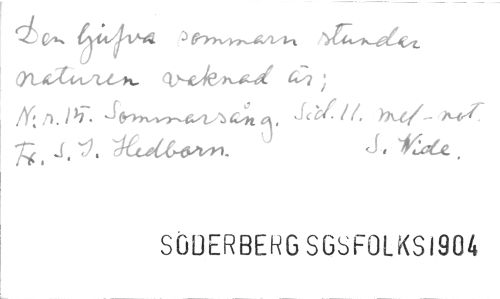 Den ljufva sommarn stundar
naturen vaknad är;
N:r. 15. Sommarsång. Sid. 11. mel-not.
Tx. S. J. Hedborn. S. Wide.
SÖDERBERG SGSFOLKS1904